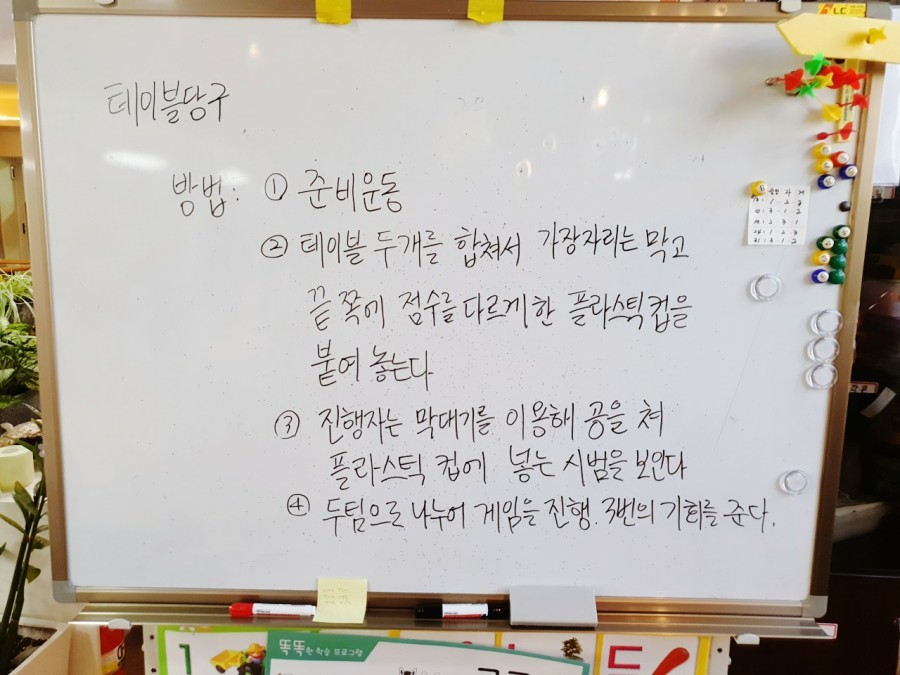 테이블당구
방법: ① 준비운동
② 테이블 두개를 합쳐서 가장자리는 막고
끝 쪽에 점수를 다르게한 플라스틱컵을
붙여 놓는다
③ 진행자는 막대기를 이용해 공을 쳐
플라스틱 컵에 넣는 시범을 보인다
④ 두팀으로 나누어 게임을 진행. 3번의 기회를 준다.
똑똑한 학습 프로그램